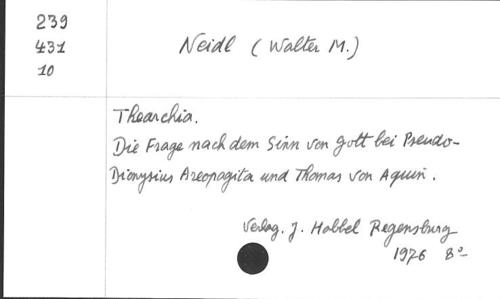 239
431
10
Neidl (Walter M.)
Thearchia.
Die Frage nach dem Sinn von Gott bei Pseudo-
Dionysius Areopagita und Thomas von Aquin.
Verlag. J. Habbel Regensburg
1976 8°